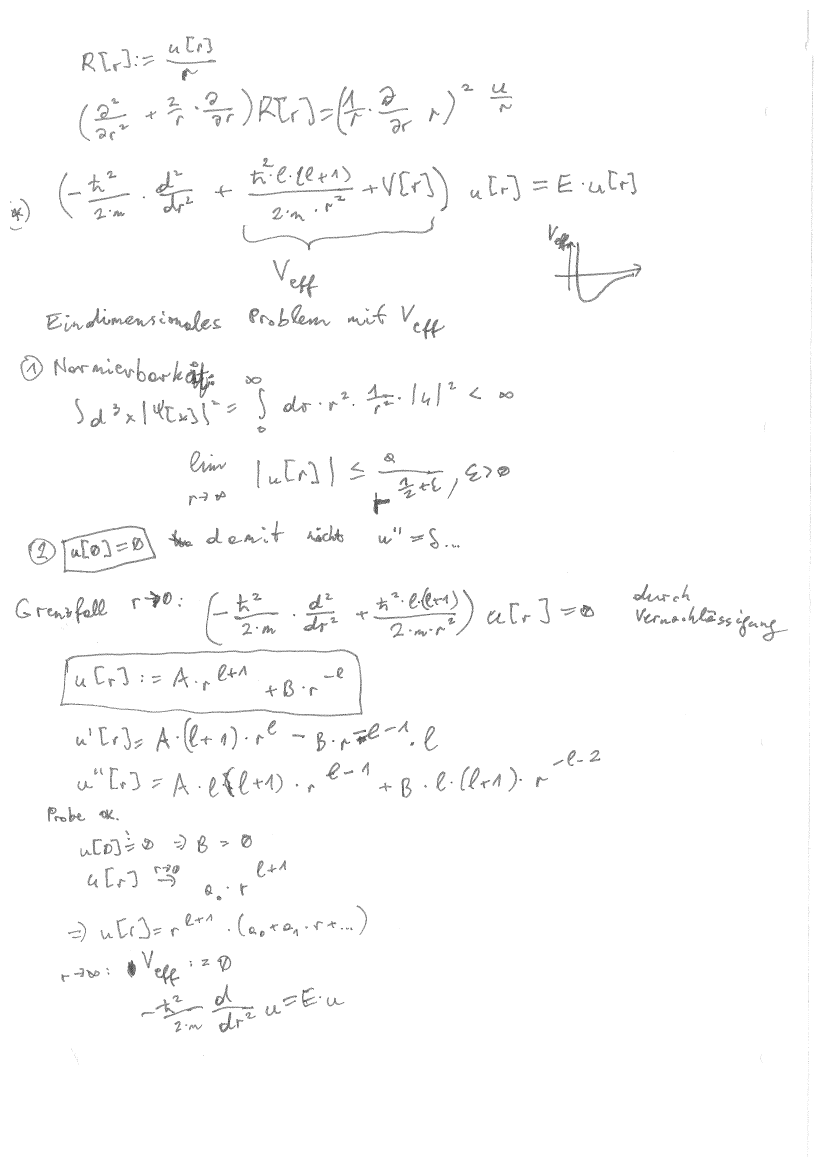 R[r]:= u[r]/r
(∂²/∂r² + 2/r · ∂/∂r) R[r] = (1/r · ∂/∂r r)² u/r
*) (-ħ²/2·m · d²/dr² + ħ²·l·(l+1)/2·m·r² + V[r]) u[r] = E·u[r]
V_eff
V_eff
Eindimensionales Problem mit V_eff
① Normierbarkeit:
∫d³x|Ψ[x]|² = ∫₀^∞ dr·r²·1/r²·|u|² < ∞
lim r→∞ |u[r]| ≤ a/r^(1/2+ε), ε>0
② u[0]=0 damit nicht u''=δ...
Grenzfall r→0: (-ħ²/2·m · d²/dr² + ħ²·l·(l+1)/2·m·r²) u[r]=0 durch Vernachlässigung
u[r]:= A·r^(l+1) + B·r^(-l)
u'[r]= A·(l+1)·r^l - B·r^(-l-1)·l
u''[r] = A·l(l+1)·r^(l-1) + B·l·(l+1)·r^(-l-2)
Probe ok.
u[0]=0 ⇒ B = 0
u[r] r→0 ⇒ a₀·r^(l+1)
⇒ u[r]=r^(l+1)·(a₀+a₁·r+...)
r→∞: V_eff := 0
-ħ²/2·m d/dr² u=E·u